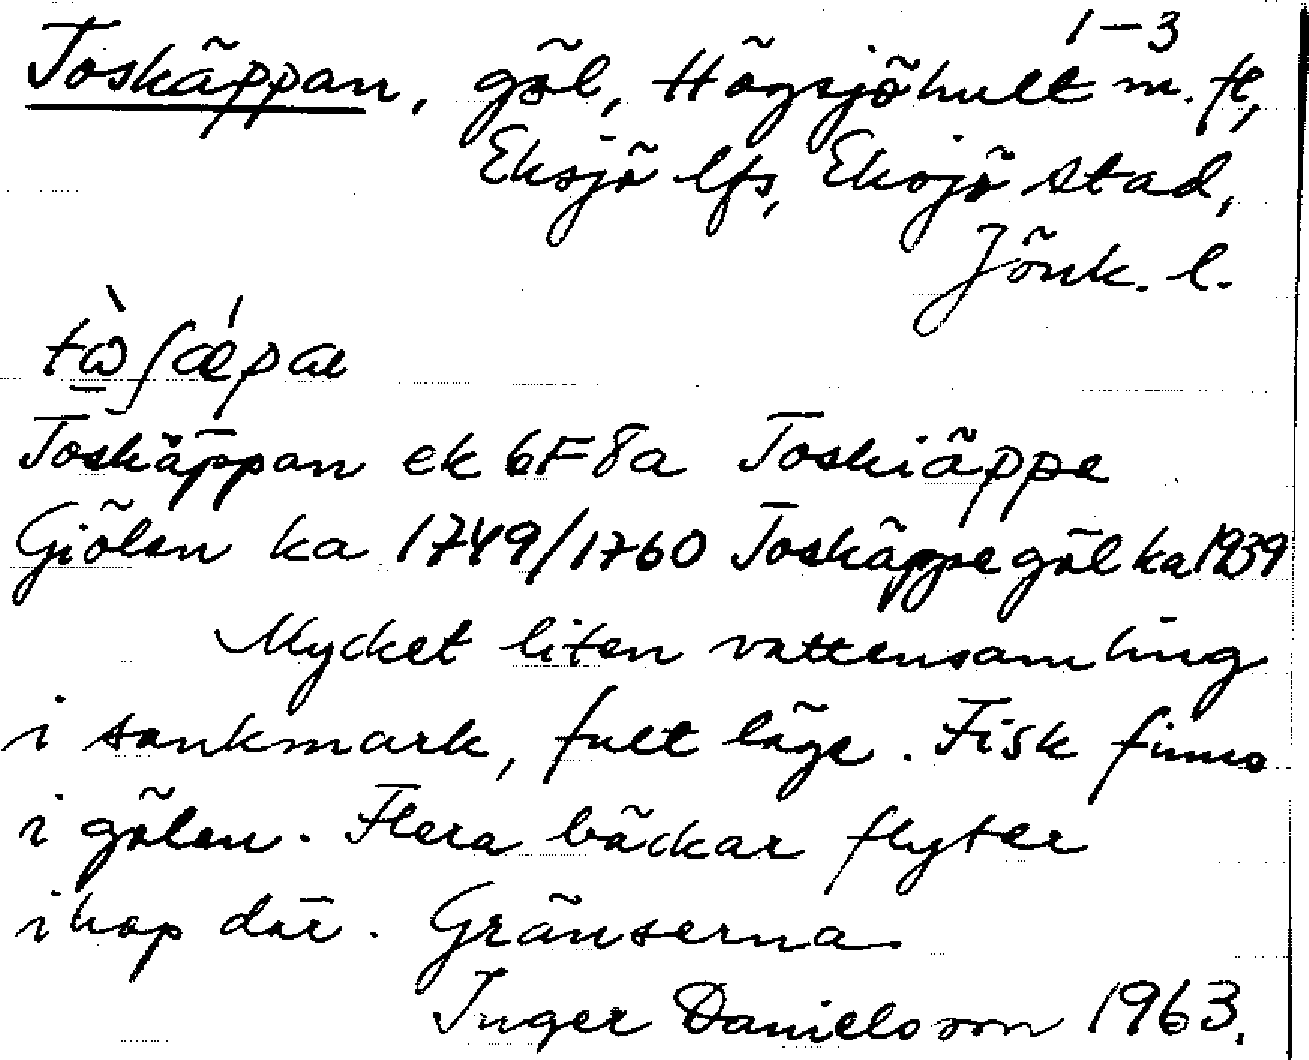 Toskäppan, göl, Högsjöhult 1–3 m. fl,
Eksjö lfs, Eksjö stad,
Jönk. l.
tɷ̀ʃǽpaɪ
Toskäppan ek 6F8a Toskiäppe
Giölen ka 1749/1760 Toskäppegöl ka 1939
Mycket liten vattensamling
i sankmark, fult läge. Fisk finns
i gölen. Flera bäckar flyter
ihop där. Gränserna.
Inger Danielsson 1963.